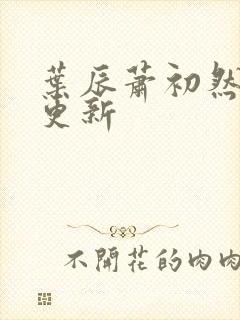 葉辰蕭初然
更新
不開花的肉肉